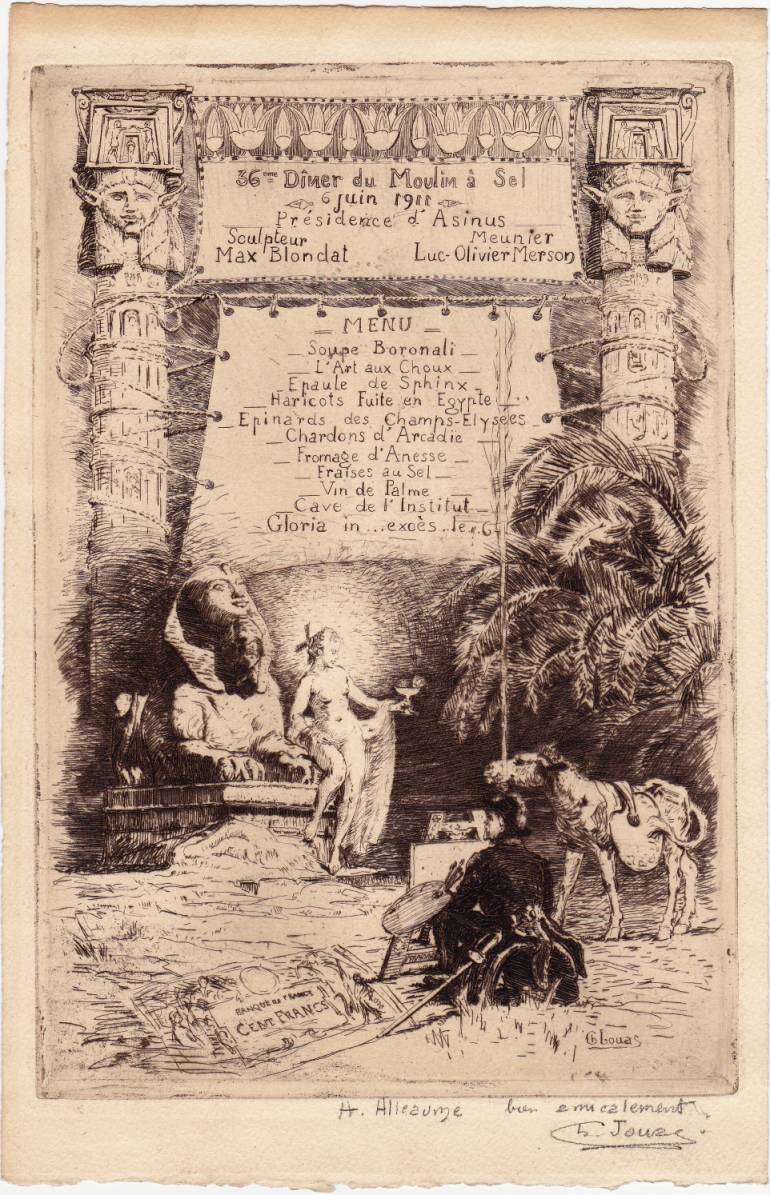 36eme Dîner du Moulin à Sel
6 juin 1911
Présidence d'Asinus
Sculpteur
Max Blondat
Meunier
Luc-Olivier Merson
_ MENU _
_ Soupe Boronali _
_ L'Art aux Choux _
_ Epaule de Sphinx _
_ Haricots Fuite en Egypte _
_ Epinards des Champs-Elysées _
_ Chardons d'Arcadie _
_ Fromage d'Anesse _
_ Fraises au Sel _
_ Vin de Palme _
_ Cave de l'Institut _
_ Gloria in...excès..le
BANQUE DE FRANCE
CENT FRANCS
Ch Jouas
A. Alleaume bien amicalement
Ch. Jouas